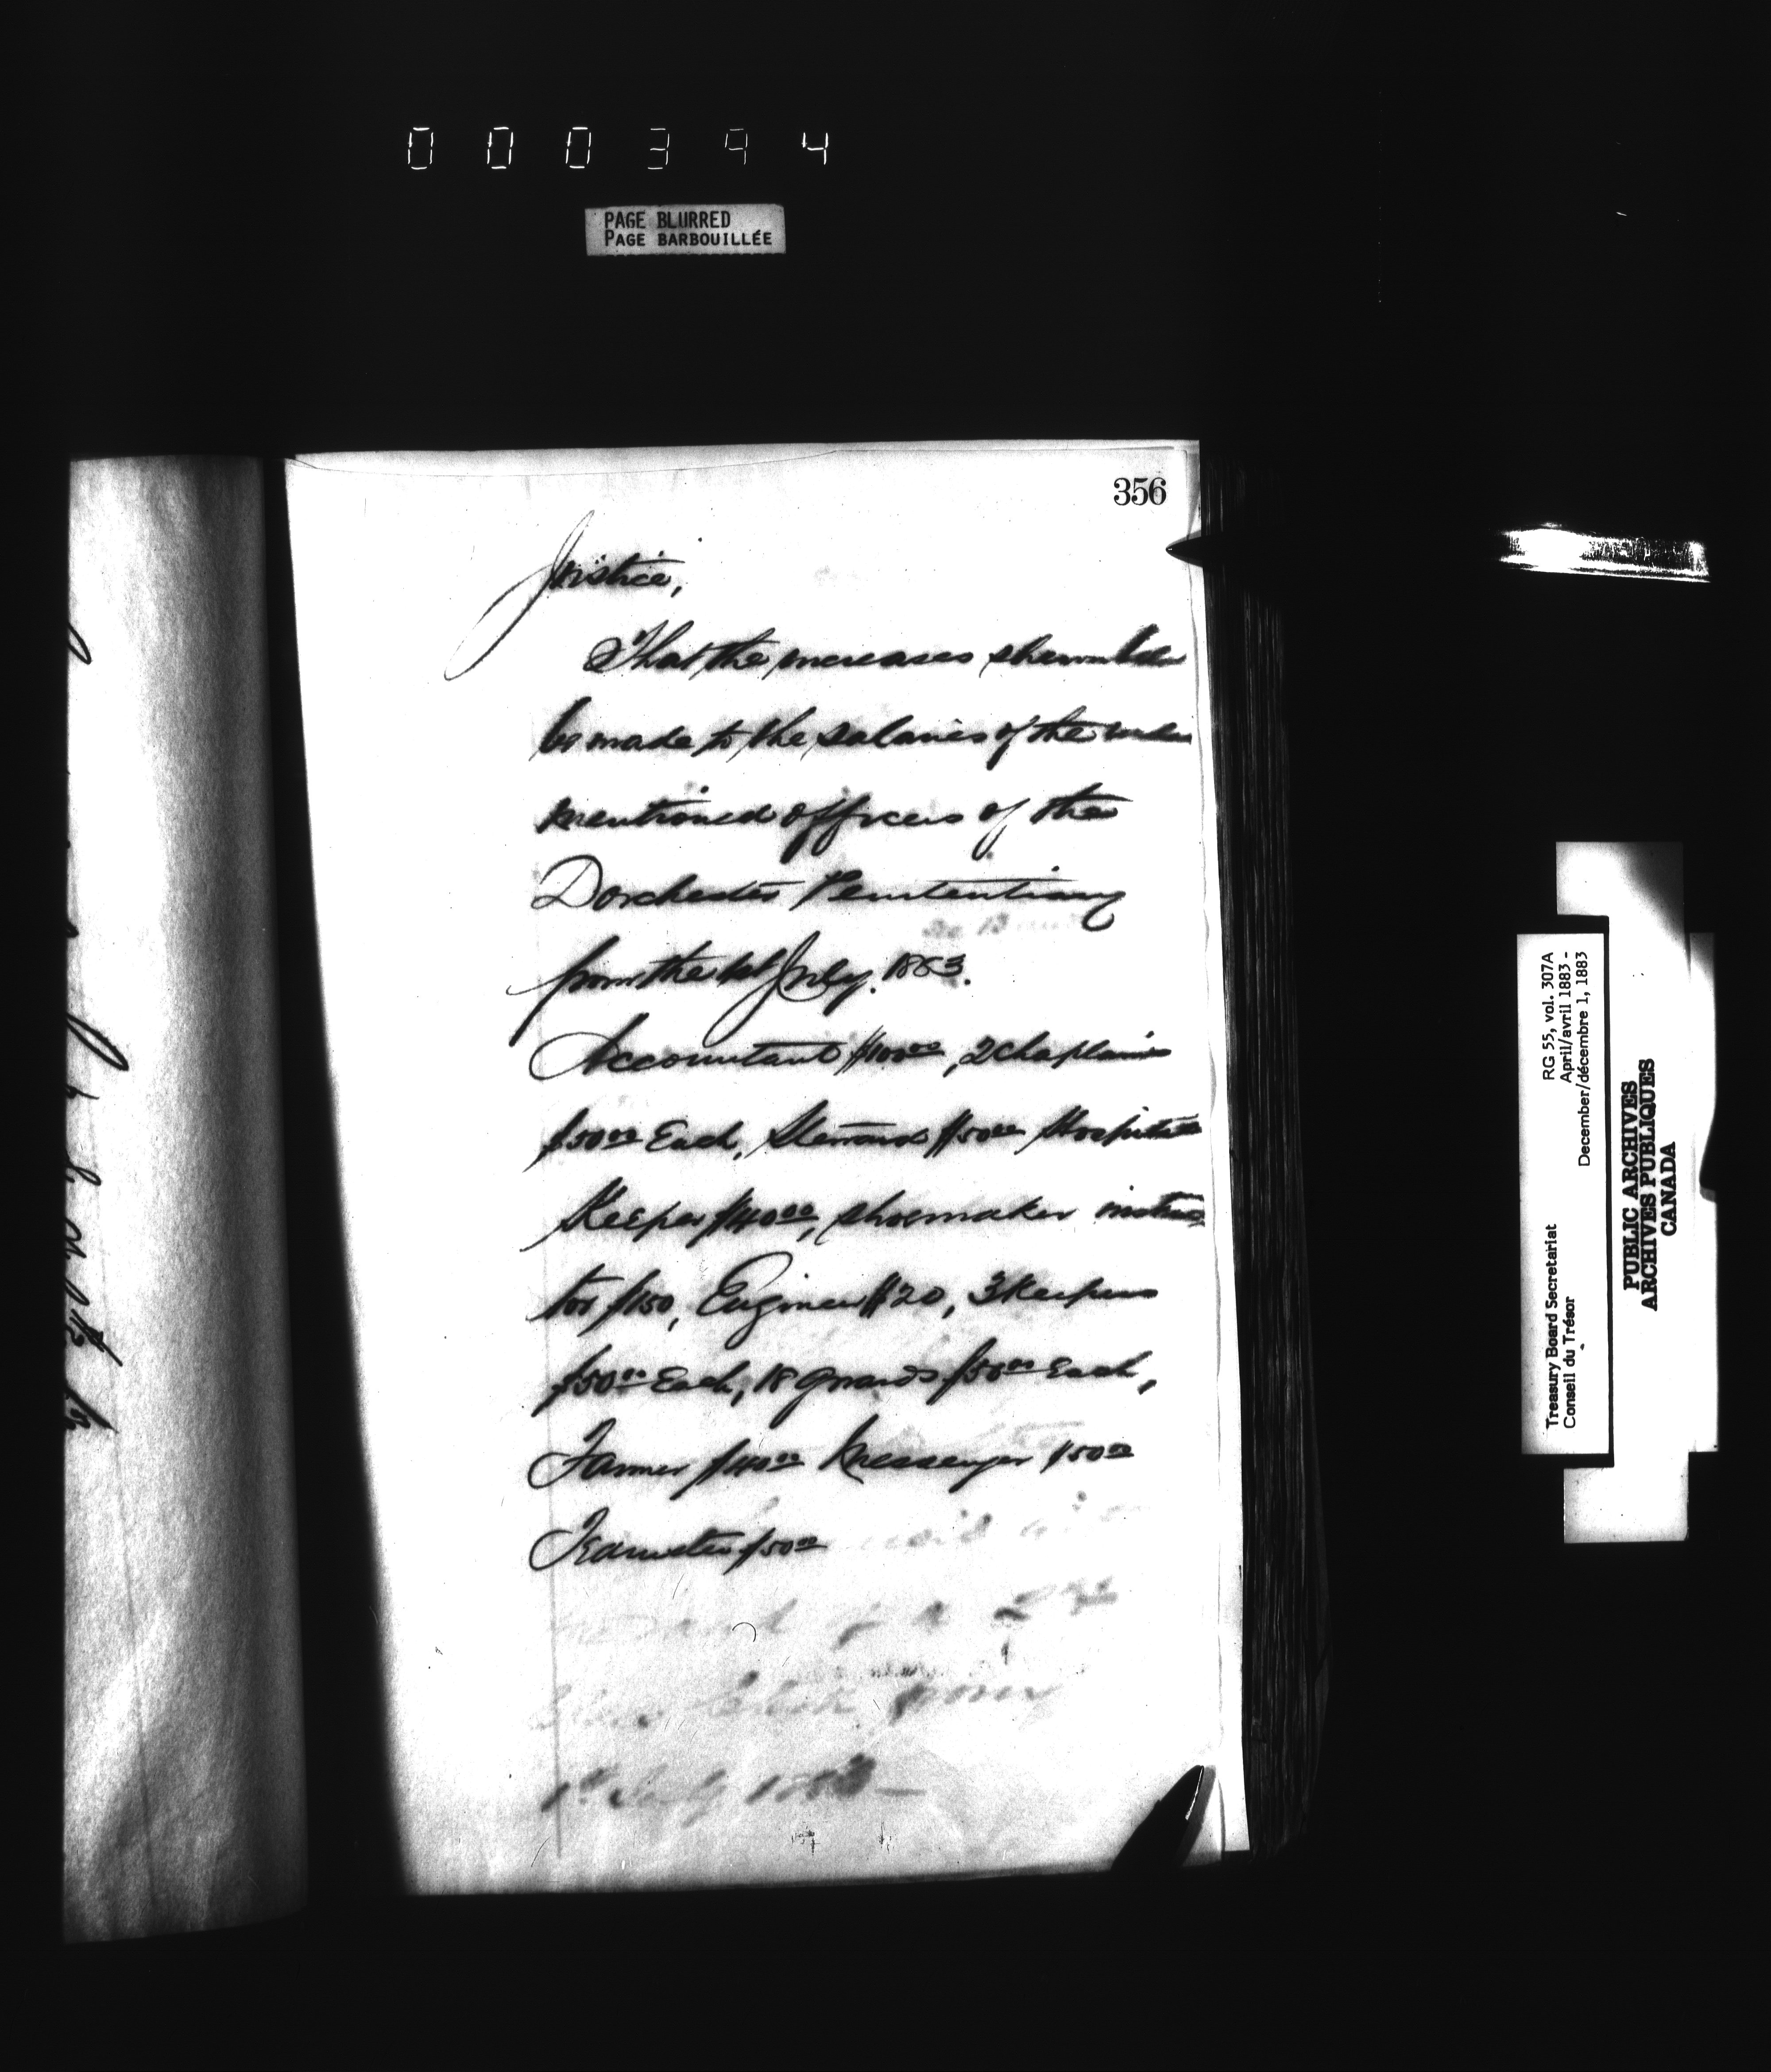 000394
PAGE BLURRED
PAGE BARBOUILLÉE
356
Justice,
That the increases shewn below
be made to the salaries of the under
mentioned officers of the
Dorchester Penitentiary
from the 1st July. 1883.
Accountant $100.00, 2 Chaplains
$50.00 Each, Steward $50.00 Hospital
Keeper $40.00, shoemaker instruc
tor $150, Engineer $20, 3 Keepers
$50.00 Each, 18 guards $50.00 Each,
Farmer $40.00 Messenger $50.00
Teamster $50.00
of a 2nd
Class from
1st July 1883 —
Treasury Board Secretariat
Conseil du Trésor
RG 55, vol. 307A
April/avril 1883 -
December/décembre 1, 1883
PUBLIC ARCHIVES
ARCHIVES PUBLIQUES
CANADA